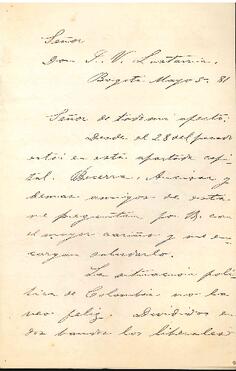 Señor
Don J. V. Lastarria.
Bogotá Mayo 5. 81
Señor de todo mi afecto:
Desde el 28 del pasado
estoi en esta apartada capi
tal. Becerra, Ancízar y
demas amigos de esta
me preguntan por U. con
el mayor cariño y me en
cargan saludarlo.
La situacion polí
tica de Colombia no la
veo feliz. Divididos en
dos bandos los liberales